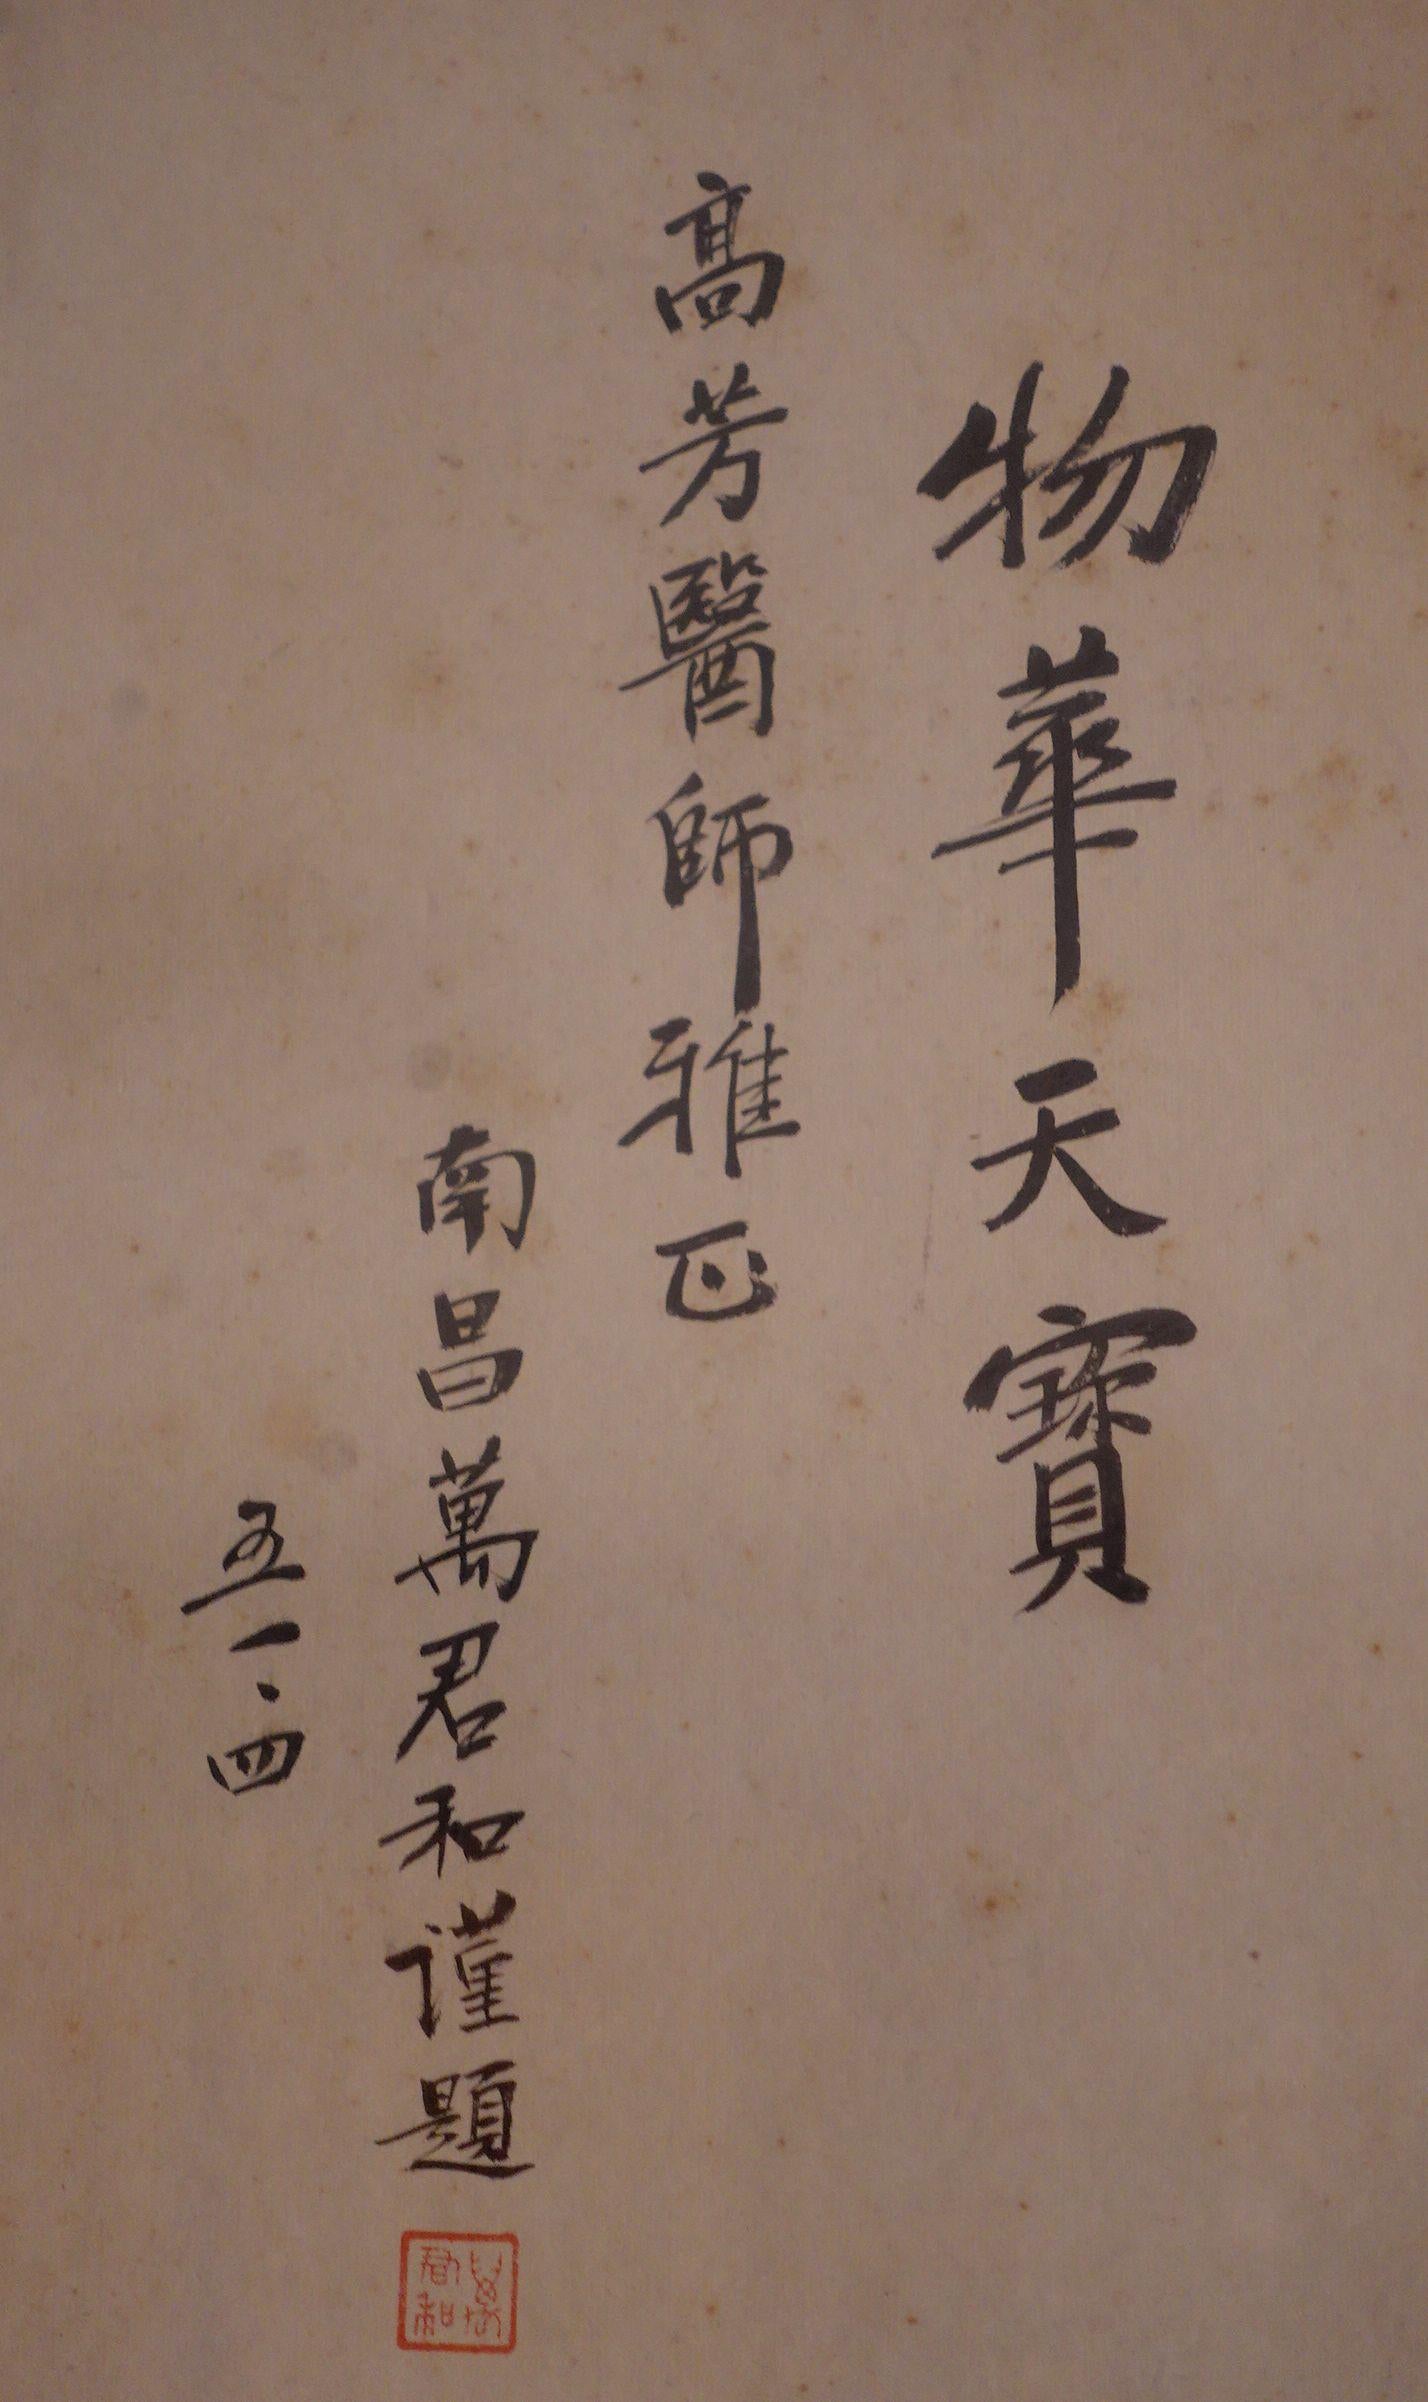 物華天寶
高芳醫師雅正
南昌萬君和謹題
五一、四
萬君和